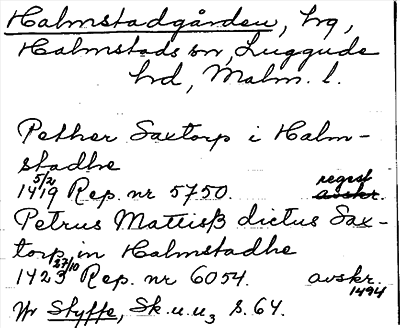 Halmstadgården, hg,
Halmstads sn, Luggude
hd, Malm. l.
Pether Saxtorp i Halm-
stadhe
1419 5/2 Rep. nr 5750. regest avskr.
Petrus Mattiss dictus Sax-
torp in Halmstadhe
1423 27/10 Rep. nr 6054. avskr. 1494
Jfr Styffe, Sk.u.u3 s. 64.